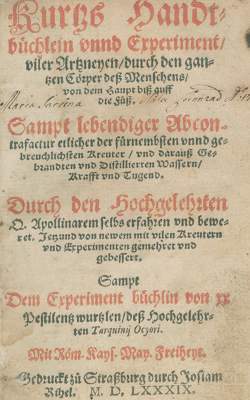 Kurtzs Handt-
büchlein vnnd Experiment/
viler Artzneyen/durch den gan-
tzen Cörper deß Menschens/
von dem Haupt biß auff
die Füß.
Maria
Sampt lebendiger Abcon-
trafactur etlicher der fürnembsten vnnd ge-
breuchlichsten Kreuter / vnd darauß Ge-
brandten vnd Distillierten Wassern/
Krafft vnd Tugend.
Durch den Hochgelehrten
Q. Apollinarem selbs erfahren vnd bewe-
ret. Jetzund von newem mit vilen Kreutern
vnd Experimenten gemehret vnd
gebessert.
Sampt
Dem Experiment büchlin von xx
Pestilentz wurtzlen/deß Hochgelehr-
ten Tarquinij Ocyori.
Mit Röm. Kays. May. Freiheyt.
Gedruckt zu Straßburg durch Josiam
Rihel. M. D. LXXXIX.